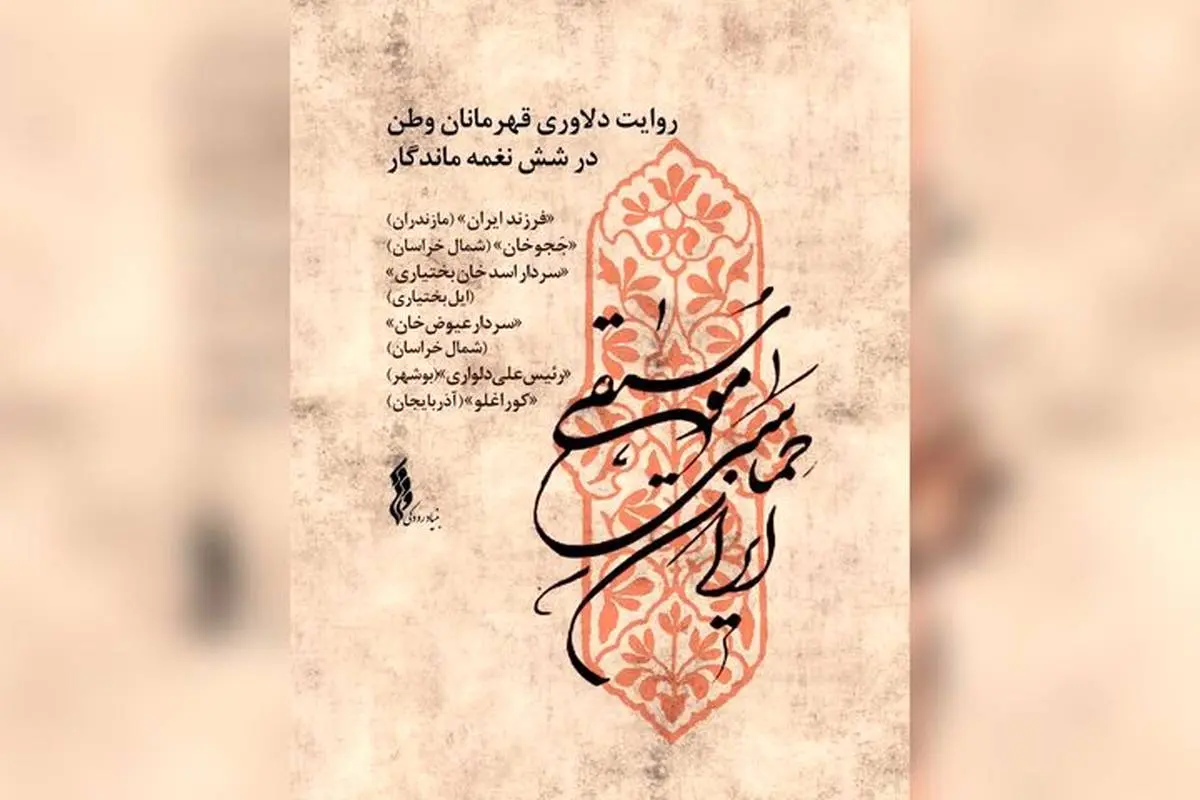 روایت دلاوری قهرمانان وطن
در شش نغمه ماندگار
«فرزند ایران» (مازندران)
«جَجوخان» (شمال خراسان)
«سردار اسد خان بختیاری»
(ایل بختیاری)
«سردار عیوض خان»
(شمال خراسان)
«رئیس علی دلواری»(بوشهر)
«کوراغلو» (آذربایجان)
موسیقی
حماسی
ایران
بنیاد رودکی